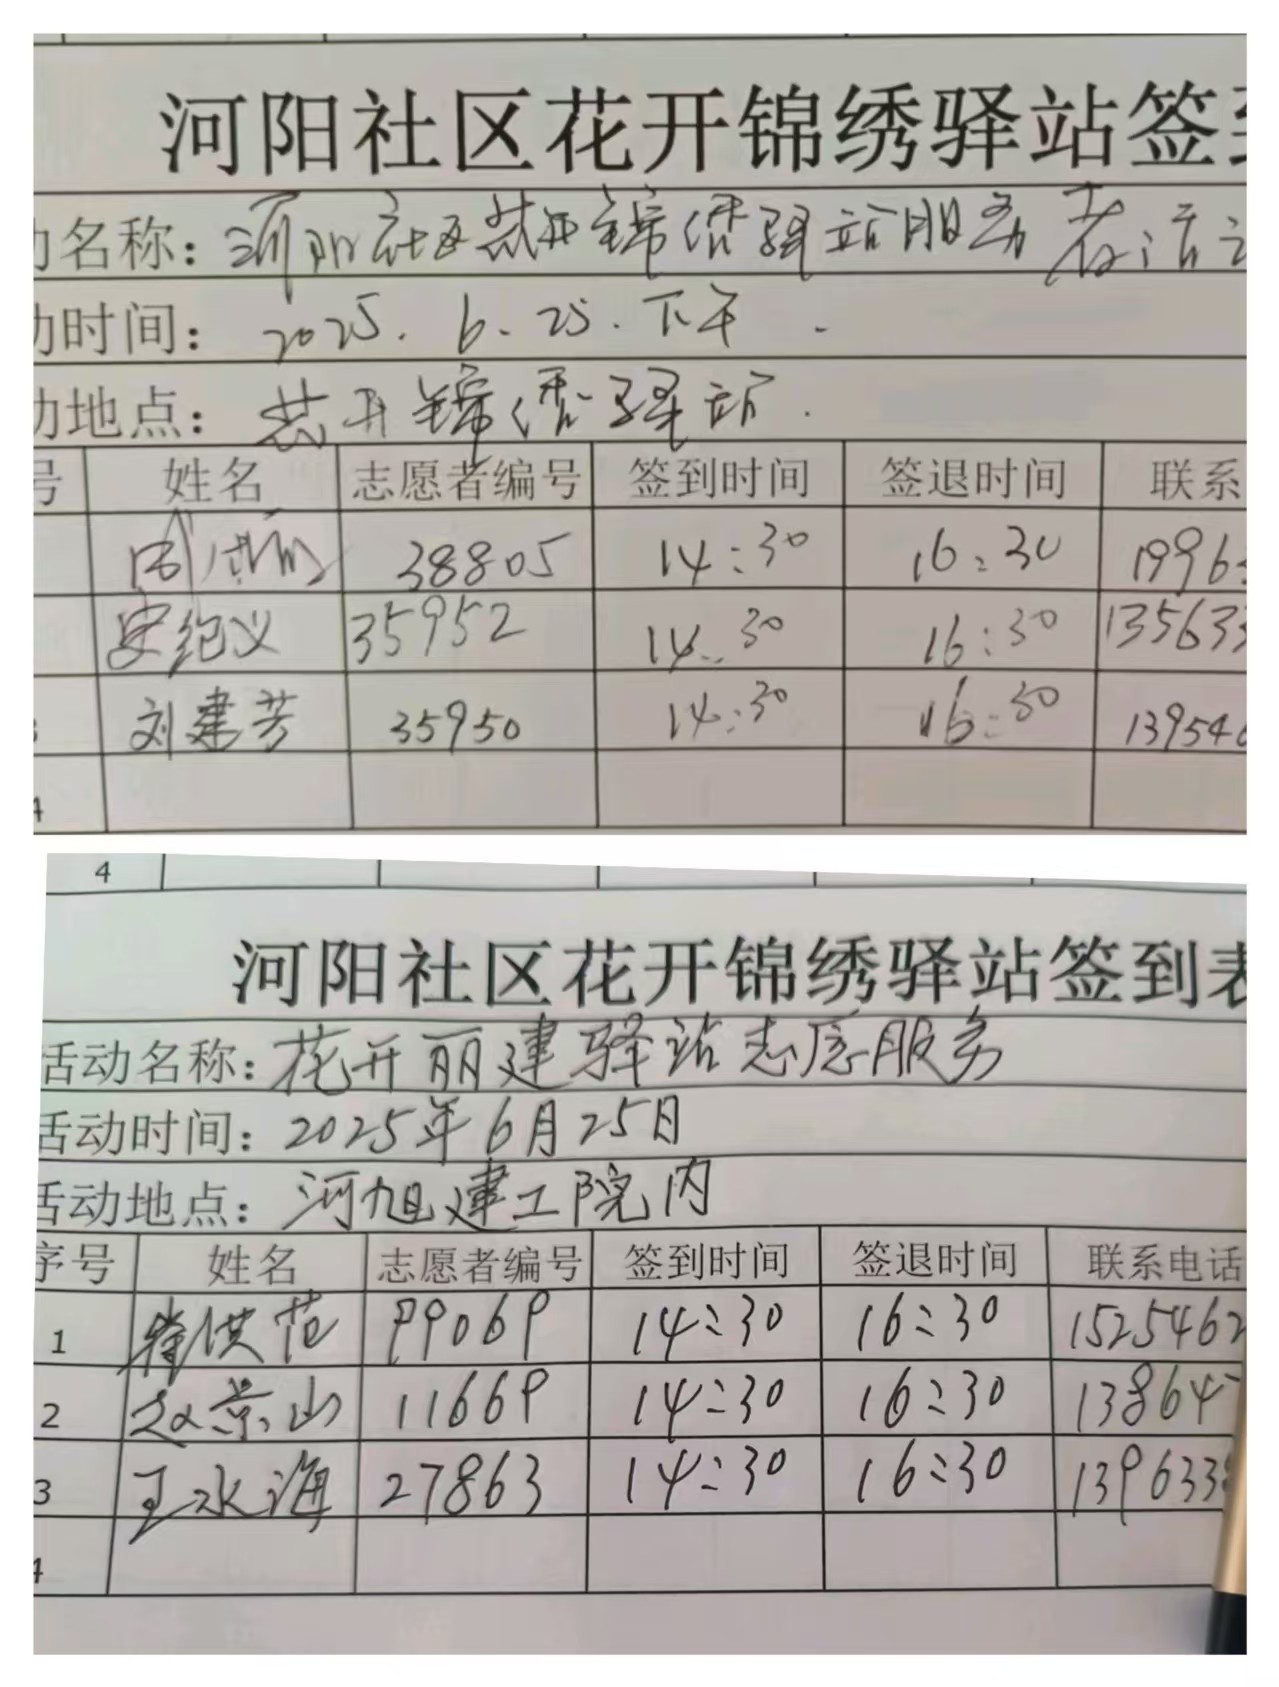 河阳社区花开锦绣驿站签到
动名称：河阳社区花开锦绣驿站服务
动时间：2025.6.25.下午.
动地点：花开锦绣驿站.
号 姓名 志愿者编号 签到时间 签退时间 联系
38805 14:30 16:30 1996
纪义 35952 14:30 16:30 13563
刘建芳 35950 14:30 16:30 13954
4
4
河阳社区花开锦绣驿站签到表
活动名称：花开丽建驿站志愿服务
活动时间：2025年6月25日
活动地点：河旭建工院内
序号 姓名 志愿者编号 签到时间 签退时间 联系电话
1 洪范 99069 14:30 16:30 1525462
2 赵景山 11669 14:30 16:30 13864
3 王永海 27863 14:30 16:30 139633
4